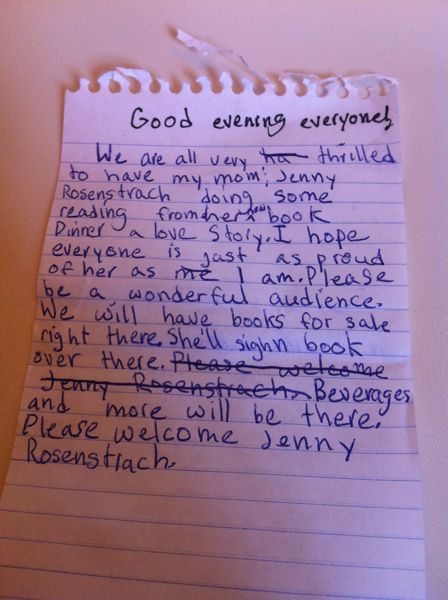 Good evening everyone!
We are all very ha thrilled
to have my mom, Jenny
Rosenstrach doing some
reading from her new book
Dinner a love Story. I hope
everyone is just as proud
of her as me I am. Please
be a wonderful audience.
We will have books for sale
right there. She'll sighn book
over there. Please welcome
Jenny Rosenstrach. Beverages
and more will be there.
Please welcome Jenny
Rosenstrach.